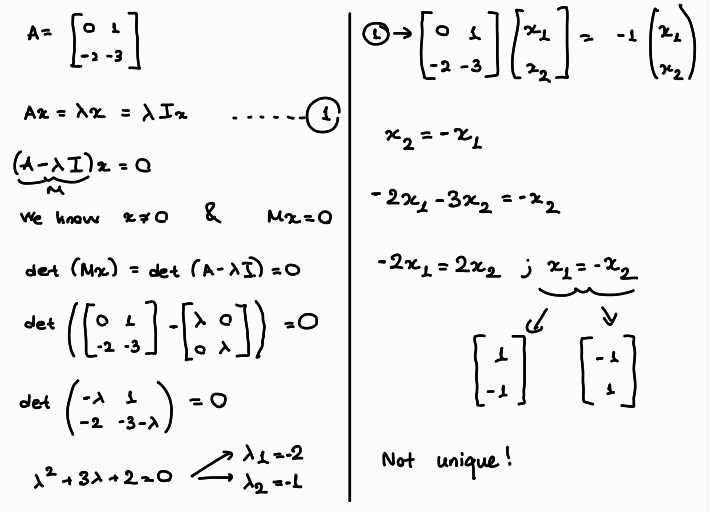 A = [0 1; -2 -3]
Ax = λx = λIx ......①
(A-λI)x = 0
M
We know x≠0 & Mx=0
det (Mx) = det (A-λI) = 0
det ([0 1; -2 -3] - [λ 0; 0 λ]) = 0
det (-λ 1; -2 -3-λ) = 0
λ² + 3λ + 2 = 0 → λ1 = -2
→ λ2 = -1
① → [0 1; -2 -3] [x1; x2] = -1 (x1; x2)
x2 = -x1
-2x1 - 3x2 = -x2
-2x1 = 2x2 ; x1 = -x2
[1; -1] [-1; 1]
Not unique!